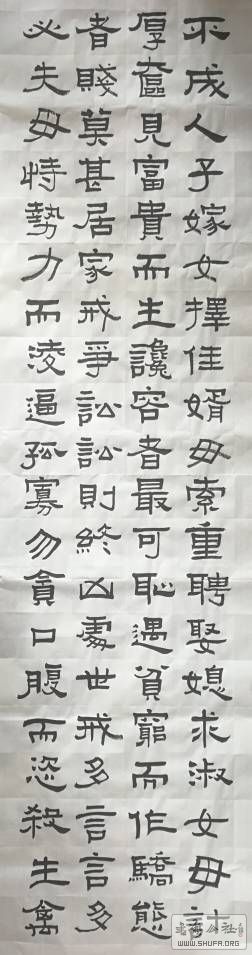 不成人子嫁女擇佳婿毋索重聘娶媳求淑女毋計
厚奩見富貴而生讒容者最可恥遇貧窮而作驕態
者賤莫甚居家戒爭訟訟則終凶處世戒多言言多
必失毋恃勢力而淩逼孤寡勿貪口腹而恣殺生禽
WWW.SHUFA.ORG